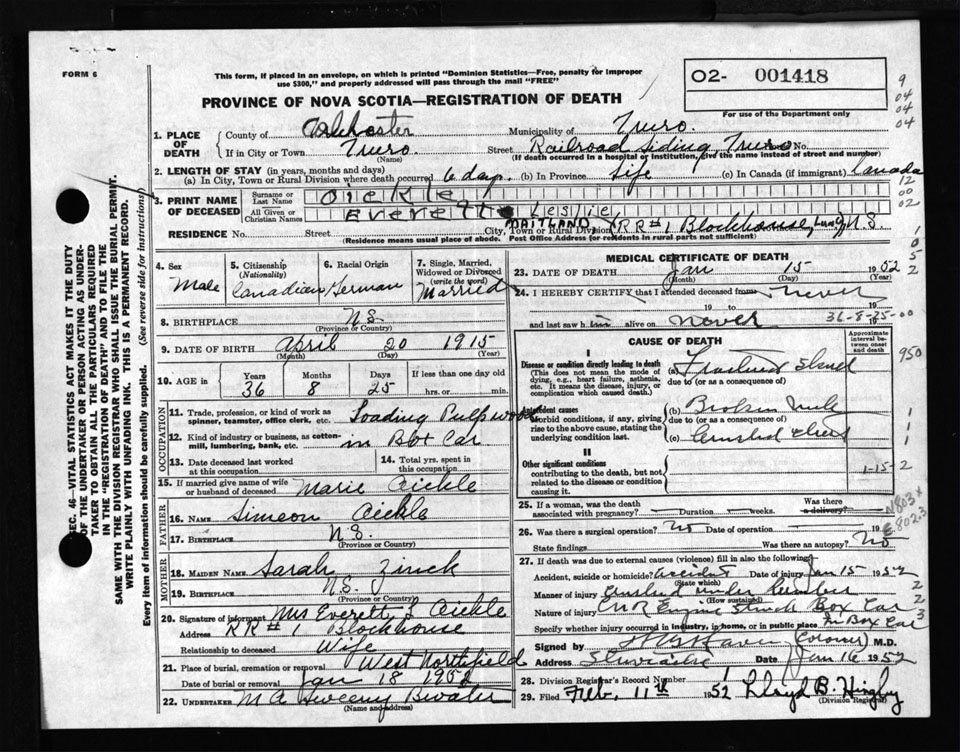 FORM 6
This form, if placed in an envelope, on which is printed "Dominion Statistics—Free, penalty for improper
use $300," and properly addressed will pass through the mail "FREE"
O2- 001418
For use of the Department only
PROVINCE OF NOVA SCOTIA—REGISTRATION OF DEATH
9
04
04
04
1. PLACE OF DEATH
County of Colchester Municipality of Truro.
If in City or Town Truro Street Railroad Siding Truro No.
(Name) (If death occurred in a hospital or institution, give the name instead of street and number)
2. LENGTH OF STAY (in years, months and days)
(a) In City, Town or Rural Division where death occurred 6 days. (b) In Province Life (c) In Canada (if immigrant) Canada
12
00
02
3. PRINT NAME OF DECEASED
Surname or Last Name Oickle
All Given or Christian Names Everett Leslie
RESIDENCE No. Street City, Town or Rural Division MAITLAND RR#1 Blockhouse, Lun. N.S.
(Residence means usual place of abode. Post Office Address for residents in rural parts not sufficient)
4. Sex Male
5. Citizenship (Nationality) Canadian
6. Racial Origin German
7. Single, Married, Widowed or Divorced (write the word) Married
8. BIRTHPLACE N.S.
(Province or Country)
9. DATE OF BIRTH April 20 1915
(Month) (Day) (Year)
10. AGE in Years 36 Months 8 Days 25 If less than one day old hrs. or min.
OCCUPATION
11. Trade, profession, or kind of work as spinner, teamster, office clerk, etc. Loading Pulpwood
12. Kind of industry or business, as cotton-mill, lumbering, bank, etc. in Box Car
13. Date deceased last worked at this occupation
14. Total yrs. spent in this occupation
15. If married give name of wife or husband of deceased Marie Oickle
FATHER
16. NAME Simeon Oickle
17. BIRTHPLACE N.S.
(Province or Country)
MOTHER
18. MAIDEN NAME Sarah Zinck
19. BIRTHPLACE N.S.
(Province or Country)
20. Signature of informant Mrs Everett L Oickle
Address RR#1 Blockhouse
Relationship to deceased Wife
21. Place of burial, cremation or removal West Northfield
Date of burial or removal Jan 18 1952
22. UNDERTAKER M A Sweeny Bwater
(Name and address)
MEDICAL CERTIFICATE OF DEATH
23. DATE OF DEATH Jan 15 1952
(Month) (Day)
24. I HEREBY CERTIFY that I attended deceased from never
19 to 19
and last saw him alive on never 19
36-8-25-00
CAUSE OF DEATH
Approximate interval between onset and death
I
Disease or condition directly leading to death
(This does not mean the mode of dying, e.g., heart failure, asthenia, etc. It means the disease, injury, or complication which caused death.)
(a) Fractured Skull
due to (or as a consequence of)
Antecedent causes
Morbid conditions, if any, giving rise to the above cause, stating the underlying condition last.
(b) Broken
due to (or as a consequence of)
(c) Crushed Chest
II
Other significant conditions
contributing to the death, but not related to the disease or condition causing it.
950
1-15-2
N803
E802.3
25. If a woman, was the death associated with pregnancy? Duration weeks. Was there a delivery?
26. Was there a surgical operation? No Date of operation 19
State findings Was there an autopsy? No
27. If death was due to external causes (violence) fill in also the following:
Accident, suicide or homicide? accident Date of injury Jan 15 1952
(State which)
Manner of injury Crushed under lumber
(How sustained)
Nature of injury CNR Engine Struck Box Car
Specify whether injury occurred in industry, in home, or in public place In Box Car
Signed by (Coroner) M.D.
Address Stewiacke Date Jan 16 1952
28. Division Registrar's Record Number 1
29. Filed Feb. 11th 1952 Lloyd B.
(Division Registrar)
SEC. 46—VITAL STATISTICS ACT MAKES IT THE DUTY
OF THE UNDERTAKER OR PERSON ACTING AS UNDER-
TAKER TO OBTAIN ALL THE PARTICULARS REQUIRED
IN THE "REGISTRATION OF DEATH" AND TO FILE THE
SAME WITH THE DIVISION REGISTRAR WHO SHALL ISSUE THE BURIAL PERMIT.
WRITE PLAINLY WITH UNFADING INK. THIS IS A PERMANENT RECORD.
Every item of information should be carefully supplied. (See reverse side for instructions)